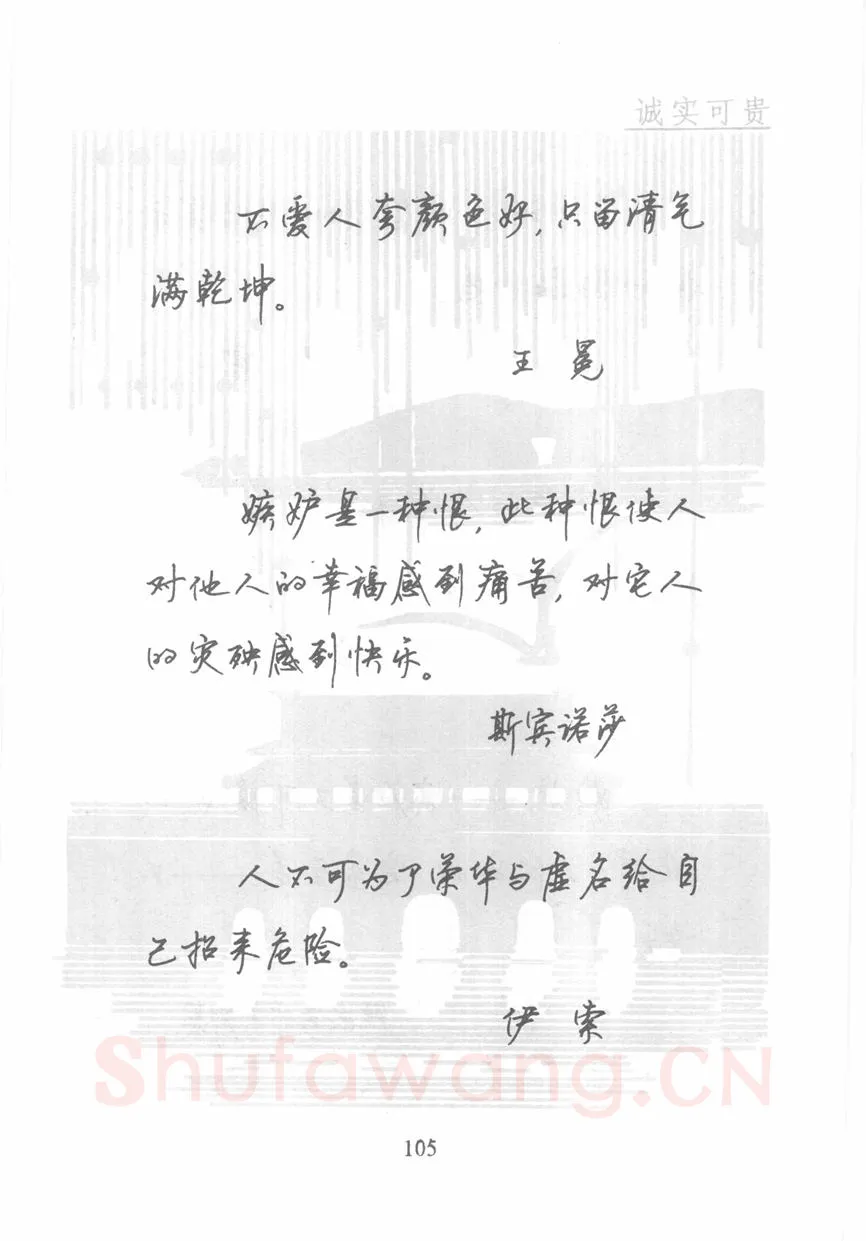 诚实可贵
不要人夸颜色好，只留清气
满乾坤。
王 冕
嫉妒是一种恨，此种恨使人
对他人的幸福感到痛苦，对它人
的灾殃感到快乐。
斯宾诺莎
人不可为了荣华与虚名给自
己招来危险。
伊 索
Shufawang.CN
105